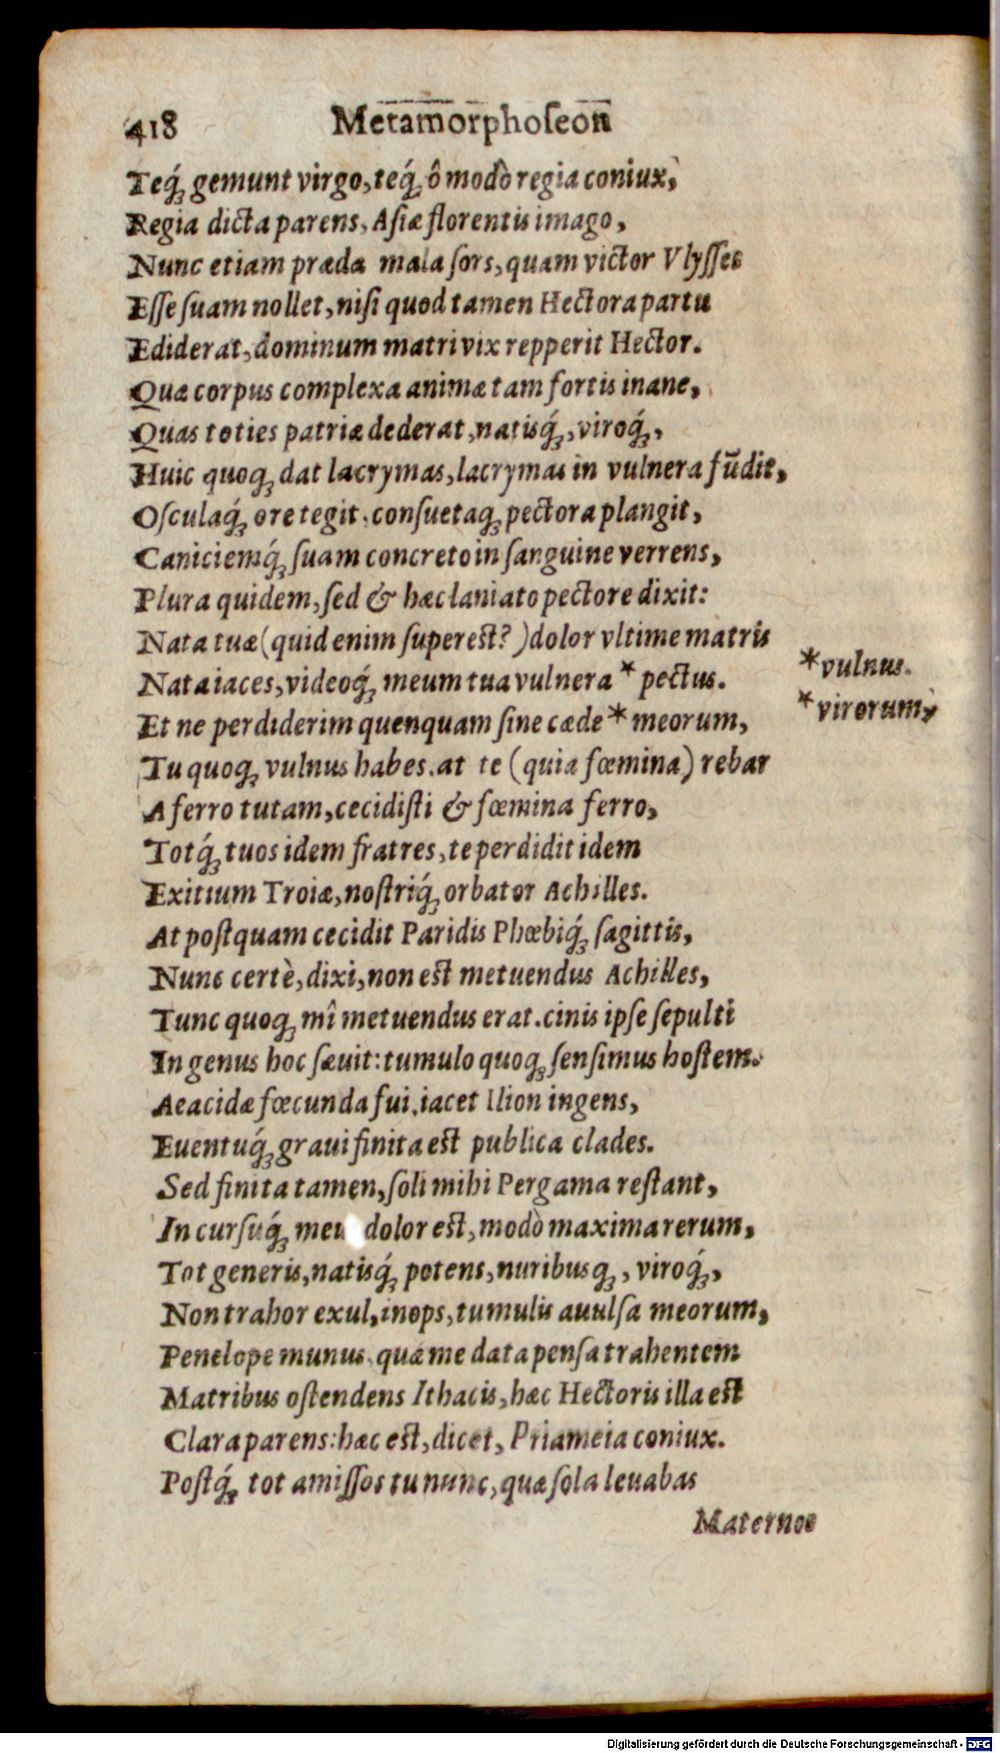 418 Metamorphoſeon
Teq́; gemunt virgo, teq́; ô modò regia coniux,
Regia dicta parens, Aſiæ florentis imago,
Nunc etiam præda mala ſors, quam victor Vlyſſes
Eſſe ſuam nollet, niſi quod tamen Hectora partu
Ediderat, dominum matri vix repperit Hector.
Quæ corpus complexa animæ tam fortis inane,
Quas toties patriæ dederat, natisq́;, viroq́;,
Huic quoq; dat lacrymas, lacrymas in vulnera fūdit,
Oſculaq́; ore tegit, conſuetaq; pectora plangit,
Caniciemq́; ſuam concreto in ſanguine verrens,
Plura quidem, ſed & hæc laniato pectore dixit:
Nata tuæ (quid enim ſupereſt? ) dolor vltime matris
Nata iaces, videoq́; meum tua vulnera * pectus.
*vulnus.
Et ne perdiderim quenquam ſine cæde * meorum,
*virorum,
Tu quoq; vulnus habes. at te (quia fœmina) rebar
A ferro tutam, cecidiſti & fœmina ferro,
Totq́; tuos idem fratres, te perdidit idem
Exitium Troiæ, noſtriq́; orbator Achilles.
At poſtquam cecidit Paridis Phœbiq́; ſagittis,
Nunc certè, dixi, non eſt metuendus Achilles,
Tunc quoq; mî metuendus erat. cinis ipſe ſepulti
In genus hoc ſæuit: tumulo quoq; ſenſimus hoſtem.
Aeacidæ fœcunda fui. iacet Ilion ingens,
Euentuq́; graui finita eſt publica clades.
Sed finita tamen, ſoli mihi Pergama reſtant,
In curſuq́; meu dolor eſt, modò maxima rerum,
Tot generis, natisq́; potens, nuribusq;, viroq́;,
Non trahor exul, inops, tumulis auulſa meorum,
Penelope munus, quæ me data penſa trahentem
Matribus oſtendens Ithacis, hæc Hectoris illa eſt
Clara parens: hæc eſt, dicet, Priameia coniux.
Poſtq́; tot amiſſos tu nunc, quæ ſola leuabas
Maternos
Digitalisierung gefördert durch die Deutsche Forschungsgemeinschaft - DFG